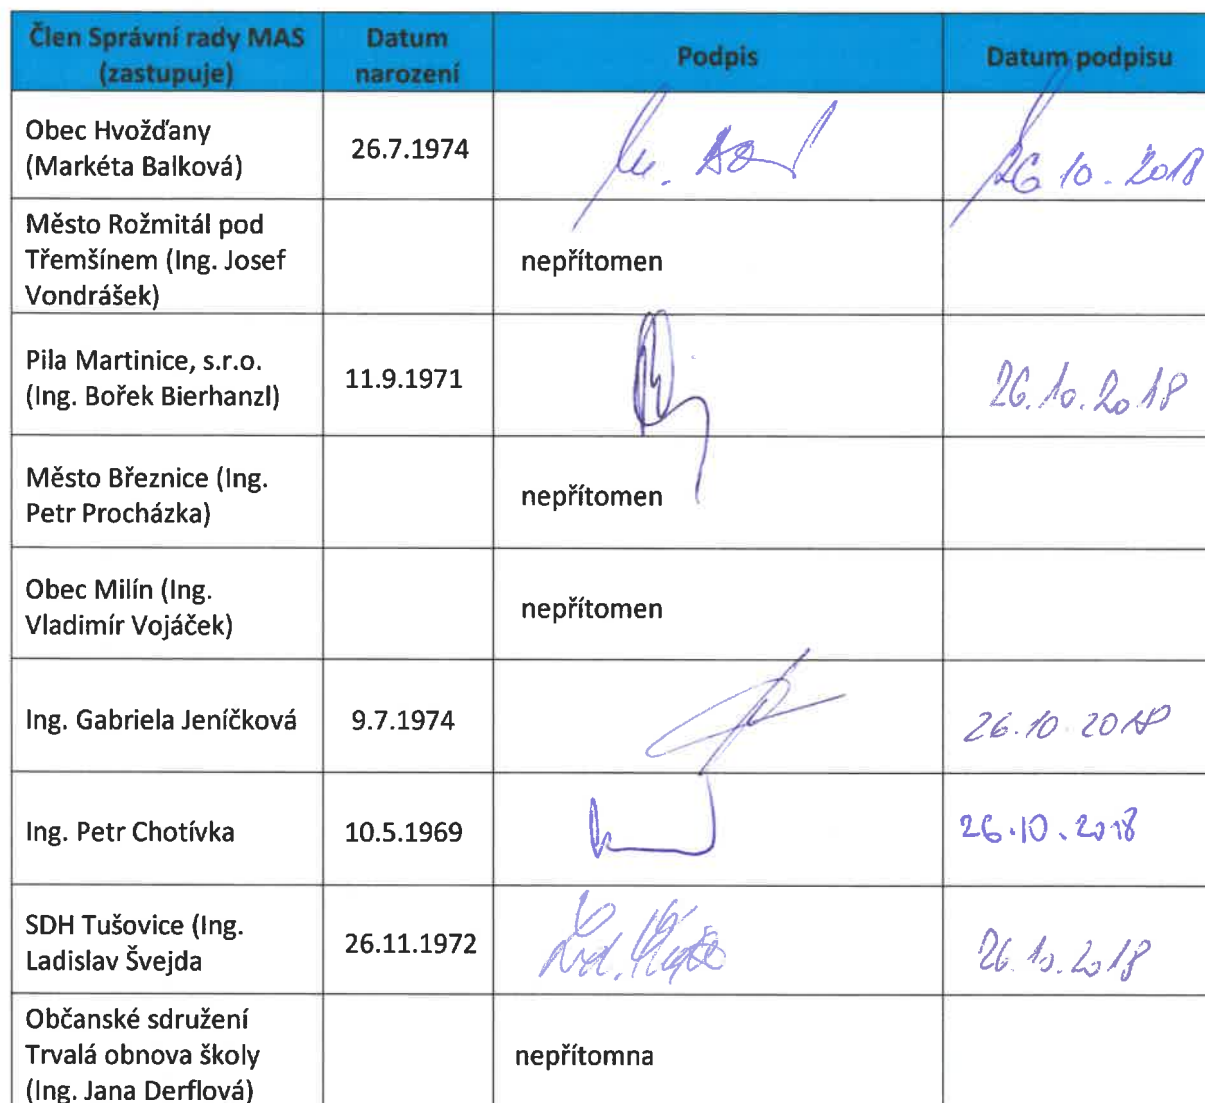 Člen Správní rady MAS
(zastupuje)
Datum
narození
Podpis
Datum podpisu
Obec Hvožďany
(Markéta Balková)
26.7.1974
26 10. 2018
Město Rožmitál pod
Třemšínem (Ing. Josef
Vondrášek)
nepřítomen
Pila Martinice, s.r.o.
(Ing. Bořek Bierhanzl)
11.9.1971
26.10.2018
Město Březnice (Ing.
Petr Procházka)
nepřítomen
Obec Milín (Ing.
Vladimír Vojáček)
nepřítomen
Ing. Gabriela Jeníčková
9.7.1974
26.10 2018
Ing. Petr Chotívka
10.5.1969
26.10.2018
SDH Tušovice (Ing.
Ladislav Švejda
26.11.1972
26.10.2018
Občanské sdružení
Trvalá obnova školy
(Ing. Jana Derflová)
nepřítomna